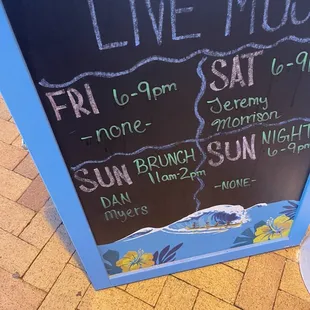 LIVE MUS
FRI 6-9pm
-none-
SAT 6-9
Jeremy
morrison
SUN BRUNCH
11am-2pm
DAN
Myers
SUN NIGHT
6-9pm
-NONE-